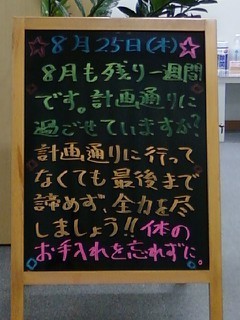 8月25日(木)
8月も残り一週間
です。計画通りに
過ごせていますか?
計画通りに行って
なくても最後まで
諦めず、全力を尽
しましょう!!体の
お手入れを忘れずに。